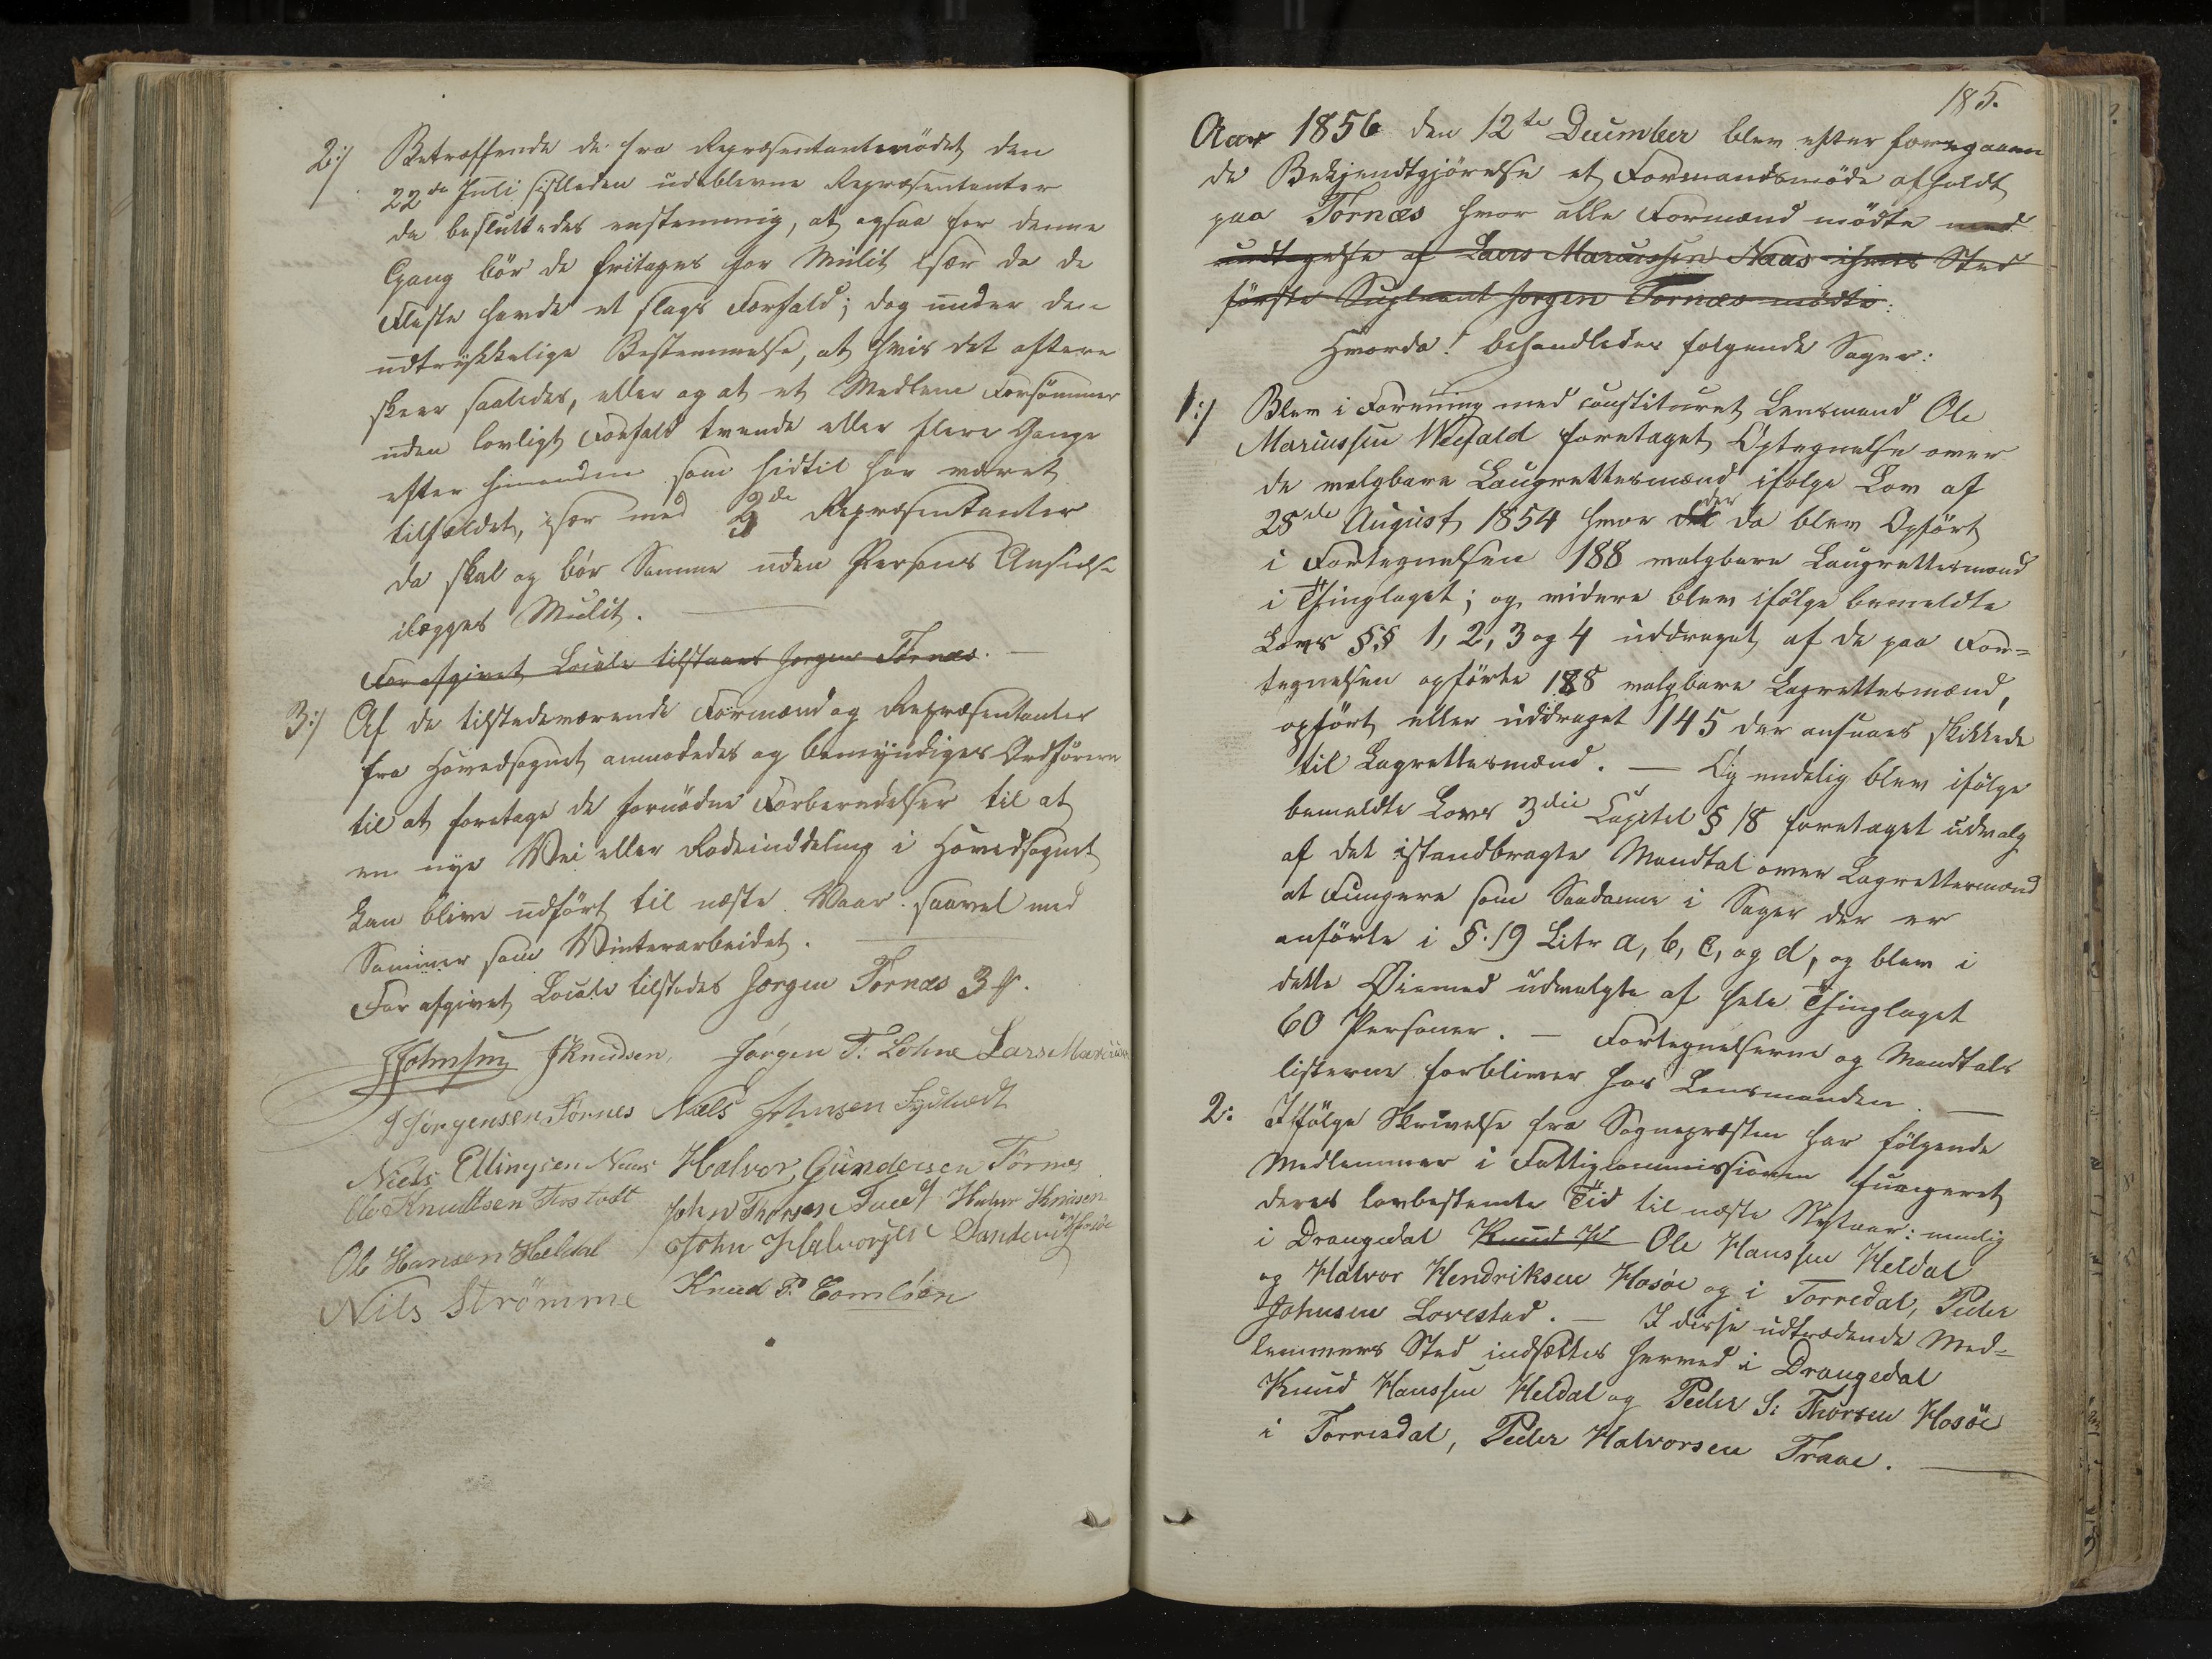 2:/ Betræffende de fra Repræsentantmödet den
22de Juli sistleden udeblevne Repræsentanter
da besluttedes enstemmig, at ogsaa for denne
Gang bör de fritages for Mulct især da de
Fleste havde et slags Forfald; dog under den
udtrykkelige Bestemmelse, at hvis det oftere
skeer saaledes, eller og at et Medlem Forsömmer
uden lovligt Forfald trende eller flere Gange
efter hinanden som hidtil har været
tilfældet, især med 3de Repræsentanter
da skal og bör Samme uden Persons Anseelse
ilægges Mulct.
For afgivet Locale tilstaaes Jørgen Tørnæs.
3:/ Af de tilstedeværende Formænd og Repræsentanter
fra Hovedsognet anmodedes og bemyndiges Ordføreren
til at foretage de fornödne Forberedelser til at
en nye Vei eller Rodeinddeling i Hovedsognet
kan blive udfört til næste Vaar saavel med
Sommer som Vinterarbeidet.
For afgivet Locale tilstodes Jørgen Tørnæs 3
JJohnsen JKnudsen, Jørgen T: Lohne Lars Marcus
J Jörgensen Törnes Næls Johnsen Sydtvedt
Niels Ellingsen Naas Halvor Gundersen Törnes
Ole Knudtsen Trostvedt John Thorsen Halvor Knusen
Ole Hansen Heldal John Halvorsen Sandvig
Nils Strömme Knud P. Tomlien
185.
Aar 1856 den 12te December blev efter foregaaen
de Bekjendtgjörelse et Formandsmöde afholdt
paa Törnæs hvor alle Formænd mödte med
undtagelse af Lars Marcussen Naas i hvis Sted
förste Supleant Jørgen Tornæs mödte.
Hvorda! behandledes folgende Sager:
1:/ Blev i Forening med constitueret Lensmand Ole
Mariussen Weefald foretaget Optegnelse over
de valgbare Laugrettesmænd ifölge Lov af
28de August 1854 hvor det der da blev Opfört
i Fortegnelsen 188 valgbare Laugrettesmænd
i Thinglaget; og videre blev ifölge bemeldte
Lovs §§ 1, 2, 3 og 4 uddraget af de paa For=
tegnelsen opförte 188 valgbare Lagrettesmænd,
opfört eller uddraget 145 der ansaaes skikkede
til Lagrettesmænd. — Og endelig blev ifölge
bemeldte Lovs 3die Capitel § 18 foretaget udvalg
af det istandbragte Mandtal over Lagrettesmænd
at Fungere som Saadanne i Sager der er
anförte i §. 19 Litr a, b, c, og d, og blev i
dette Øiemed udvalgte af hele Thinglaget
60 Personer. — Fortegnelserne og Mandtals
listerne forbliver hos Lensmanden. —
2: Ifölge Skrivelse fra Sognepræsten har fölgende
Medlemmer i Fattigcommissionen fungeret
deres lovbestemte Tid til næste Nytaar: nemlig
i Drangedal Knud H Ole Hanssen Heldal
og Halvor Hendriksen Hosöe og i Torredal, Peder
Johnsen Lovestad. — I disse udtrædende Med=
lemmers Sted indsættes herved i Drangedal
Knud Hanssen Heldal og Peder S: Thorsen Hosöe
i Torredal, Peder Halvorsen Traae. —